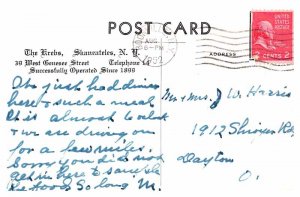 POST CARD
AUG
6-PM
1952
ADDRESS
CENTS 2
The Krebs, Skaneateles, N. Y.
39 West Genesee Street Telephone 14
Successfully Operated Since 1899
We just had dinner
here & such a meal
It is almost 6 o'clock
& we are driving on
for a few miles.
Sorry you did not
get in here to sample
the food. So long M.
Mr & Mrs J. W. Harris
1912 Rd.
Dayton
O.